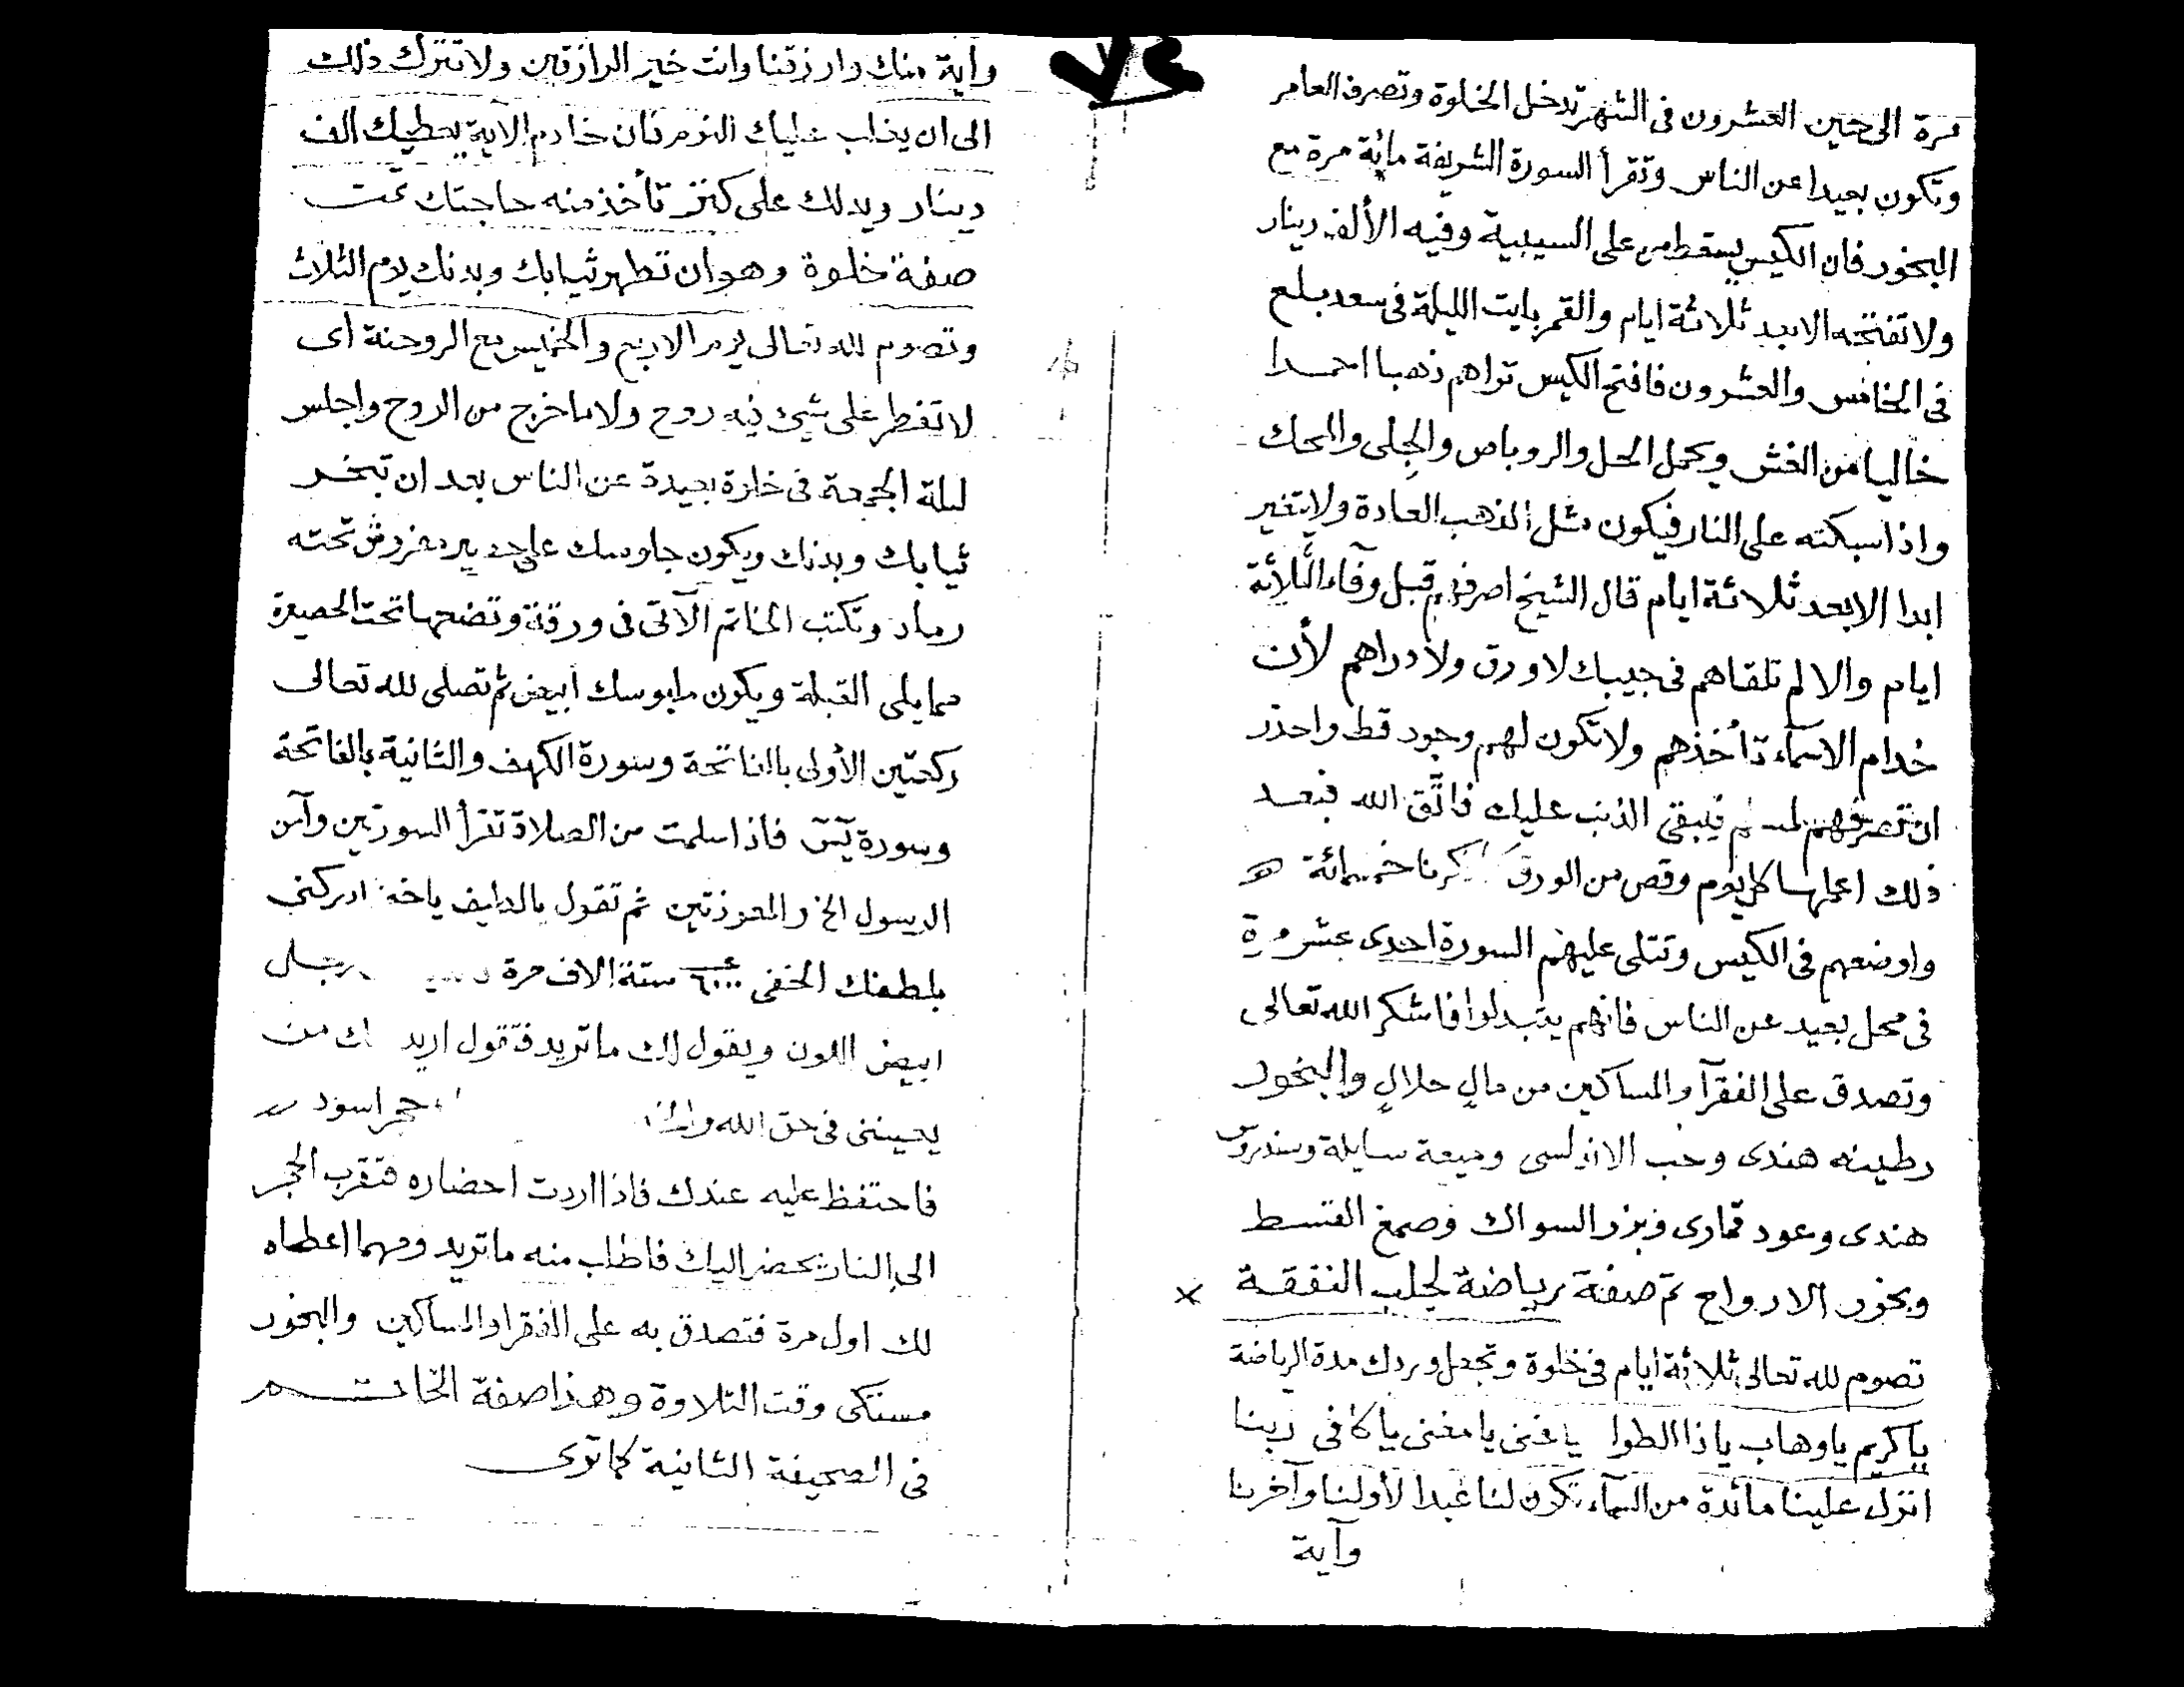 مرة الى حين العشرون فى الشهر تدخل الخلوة وتصرف العامر
وتكون بعيدا عن الناس وتقرأ السورة الشريفة مائة مرة مع
البخور فان الكيس يسقط من على السيبية وفيه الألف دينار
ولا تفتحه الا بعد ثلاثة ايام والقمر بايت الليلة فى سعد بلع
فى الخامس والعشرون فافتح الكيس تراهم ذهبا احمدا
خاليا من الغش ويحمل الحل والروباص والجلى والمحك
واذا سبكته على النار فيكون مثل الذهب العادة ولا يتغير
ابدا الا بعد ثلاثة ايام قال الشيخ اصرفهم قبل وفاء الثلاثة
ايام والا لم تلقاهم فى جيبك لا ورق ولا دراهم لأن
خدام الاسماء تأخذهم ولا تكون لهم وجود قط واحذر
ان تصرفهم فيبقى الذنب عليك فاتّق الله فبعد
ذلك اعملها كل يوم وقص من الورق كرنا خمسمائة
واوضعهم فى الكيس وتتلى عليهم السورة احدى عشر مرة
فى محل بعيد عن الناس فانهم يتبدلوا فاشكر الله تعالى
وتصدق على الفقرآ والمساكين من مالٍ حلالٍ والبخور
رطينه هندى وحب الاندلسى وميعة سايلة وسندروس
هندى وعود قمارى وبزر السواك وصمغ القسط
وبخور الارواح تم صفة رياضة لجلب النفقة
تصوم لله تعالى ثلاثة ايام فى خلوة وتجعل وردك مدة الرياضة
يا كريم يا وهاب يا ذا الطوا يا غنى يا مغنى يا كافى ربنا
انزل علينا مائدة من السماء تكون لنا عيدا لأولنا وآخرنا
وآية
٧٤
وآية منك وارزقنا وانت خير الرازقين ولا تترك ذلك
الى ان يغلب عليك النوم فان خادم الاية يعطيك الف
دينار ويدلك على كنز تأخذ منه حاجتك تمت
صفة خلوة وهو ان تطهر ثيابك وبدنك يوم الثلاث
وتصوم لله تعالى يوم الاربع والخميس مع الروحنة أى
لا تفطر على شيئ فيه روح ولا ما خرج من الروح واجلس
ليلة الجمعة فى خلوة بعيدة عن الناس بعد ان تبخر
ثيابك وبدنك ويكون جلوسك على حصير مفروش تحته
رماد وتكتب الخاتم الآتى فى ورقة وتضعها تحت الحصيرة
مما يلى القبلة ويكون ملبوسك ابيض ثم تصلى لله تعالى
ركعتين الأولى بالفاتحة وسورة الكهف والثانية بالفاتحة
وسورة يّس فاذا سلمت من الصلاة تقرأ السورتين وآمن
الرسول الخ والمعوذتين ثم تقول يا لطيف ادركنى
بلطفك الخفى ٦٠٠٠ ستة الاف مرة رجل
ابيض اللون ويقول لك ما تريد فتقول اريد من
يعيننى فى حق الله حجر اسود
فاحتفظ عليه عندك فاذا اردت احضاره فتقرب الحجر
الى النار يحضر اليك فاطلب منه ما تريد ومهما اعطاه
لك اول مرة فتصدق به على الفقرا والمساكين والبخور
مستكى وقت التلاوة وهذا صفة الخاتم
فى الصحيفة الثانية كما ترى